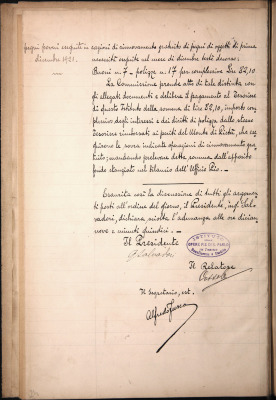 pegni gratuiti eseguiti in
dicembre 1921.
cazioni di rinnovamento gratuito di pegni di oggetti di prima
necessità eseguite nel mese di dicembre testé decorso:
Buoni n. 7 - polizze n. 17 per complessive Lire 52,10
La Commissione prende atto di tale distinta con
gli allegati documenti e delibera il pagamento al Tesoriere
di questo Istituto della somma di lire 52,10, importo com
plessivo degli interessi e dei diritti di polizza dallo stesso
Tesoriere rimborsati ai periti del Monte di Pietà, che es
eguirono le sovra indicate operazioni di rinnovamento gra
tuito; mandando prelevare detta somma dall'apposito
fondo stanziato nel bilancio dell'Ufficio Pio.
Esaurita così la discussione di tutti gli argomen
ti posti all'ordine del giorno, il Presidente, ing. Sal
vadori, dichiara sciolta l'adunanza alle ore dician
nove e minuti quindici. -
Il Presidente
G Salvadori
ISTITUTO
OPERE PIE DI S. PAOLO
IN TORINO
Beneficenza e Credito
Il Relatore
Il Segretario, est.
Alfredo